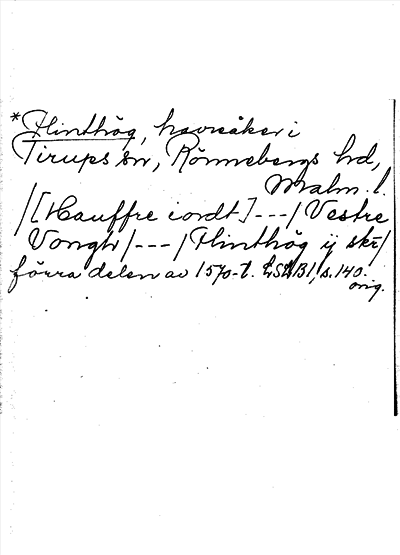 *Flinthög, havreåker i
Tirups sn, Rönnebergs hd,
Malm. l.
/[Hauffre iordt]---/Vestre
Vongh/---/Flinthög ij skr/
förra delen av 1570-t. LSLB1, s. 140.
orig.